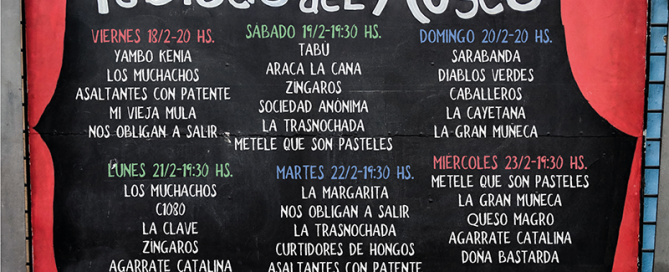 del Museo
VIERNES 18/2-20 HS.
YAMBO KENIA
LOS MUCHACHOS
ASALTANTES CON PATENTE
MI VIEJA MULA
NOS OBLIGAN A SALIR
SÁBADO 19/2-19:30 HS.
TABÚ
ARACA LA CANA
ZÍNGAROS
SOCIEDAD ANÓNIMA
LA TRASNOCHADA
METELE QUE SON PASTELES
DOMINGO 20/2-20 HS.
SARABANDA
DIABLOS VERDES
CABALLEROS
LA CAYETANA
LA GRAN MUÑECA
LUNES 21/2-19:30 HS.
LOS MUCHACHOS
C1080
LA CLAVE
ZÍNGAROS
AGARRATE CATALINA
MARTES 22/2-19:30 HS.
LA MARGARITA
NOS OBLIGAN A SALIR
LA TRASNOCHADA
CURTIDORES DE HONGOS
ASALTANTES CON PATENTE
MIÉRCOLES 23/2-19:30 HS.
METELE QUE SON PASTELES
LA GRAN MUÑECA
QUESO MAGRO
AGARRATE CATALINA
DOÑA BASTARDA